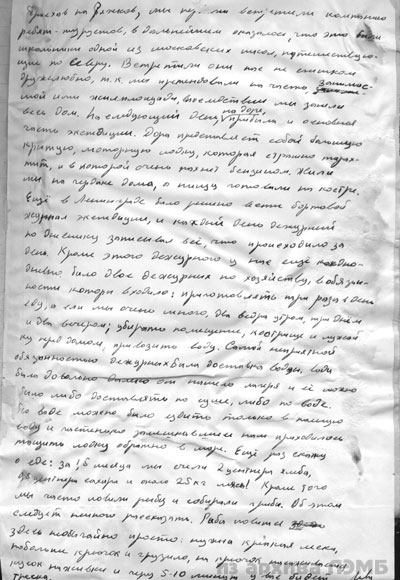 Приехав на Ряжков, мы
встретили компанию
ребят-туристов, в дальнейшем оказалось, что это были
школьники одной из московских школ, путешествую-
щие по Северу. Встретили они нас не слишком
дружелюбно, т.к. мы претендовали на часть занимае-
мой ими жилплощади, впоследствии мы заняли
весь дом. На следующий день на Доре прибыла и основная
часть экспедиции. Дора представляет собой большую
крытую, моторную лодку, которая страшно тарах-
тит, и в которой очень пахнет бензином. Жили
мы на чердаке дома, а пищу готовили на костре.
Ещё в Ленинграде было решено вести бортовой
журнал экспедиции, и каждый день дежурный
по дневнику записывал всё, что происходило за
день. Кроме этого дежурного у нас ещё каждо-
дневно было двое дежурных по хозяйству, в обязан-
ности которых входило: приготовлять три раза в день
еду, а ели мы очень много, два ведра утром, три днём
и два вечером; убирать помещение, кострище и лужай-
ку пред домом, привозить воду. Самой неприятной
обязанностью дежурных была доставка воды, вода
была довольно далеко от нашего лагеря и её можно
было либо доставлять по суше, либо по воде.
По воде можно было ездить только в полную
воду и частенько замешкавшимся нам приходилось
тащить лодку обратно в море. Ещё раз скажу
о еде: за 1,5 месяца мы съели 2 центнера хлеба,
центнера сахара и около 25 кг мяса! Кроме того
мы часто ловили рыбу и собирали грибы. Об этом
следует немного рассказать. Рыба ловится
здесь необычайно просто: нужна крепкая леска,
большие крючок и грузило, на крючок насаживается
кусок наживки и через 5-10 минут
треска.
из архива ЛЭМБ